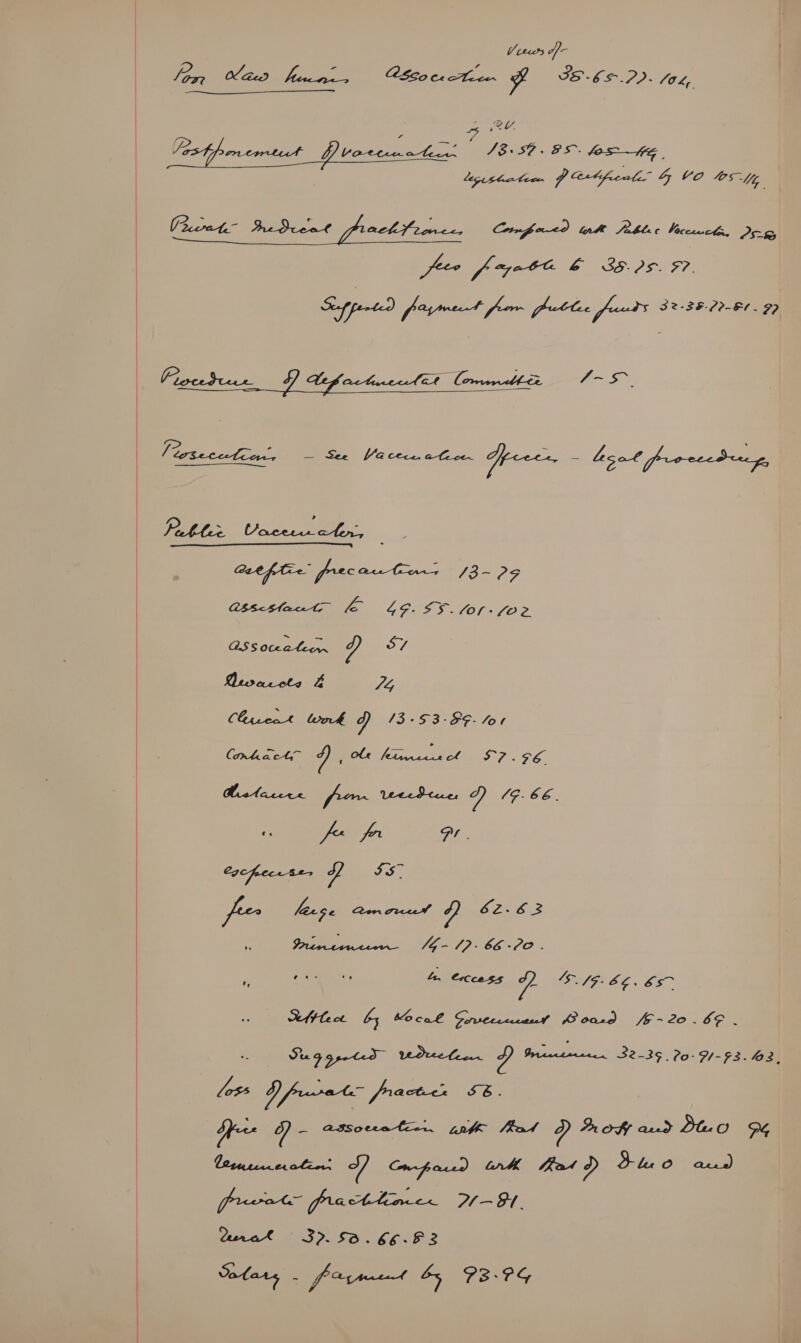 Views of
Poor Law Unions Association of 38-65-77-104
by P.V.
Postponement of vaccination 13-57-85-105
registration of certificates by VO 105-114
Private Medical practitioners Compared with Public Vaccinators 75-80
fees payable to 38-75-77.
Suggested payment from public funds 32-38-77-81-97
Procedure of departmental Committee 1-5.
Prosecutions, - See Vaccination Officers, - legal proceedings
Public Vaccinators,
Aseptic precautions 13-29
Assistants to 49-55-101-102
Association of 57
Awards to 74
Clerical work of 13-53-89-101
Contracts of, old terminated 57-96.
distance from residences of 19-66.
" fee for 91.
expenses of 55.
fees large amount of 62-63
" Minimum 14-17-66-70.
" " " in excess of 15-19-64-65
" Settled by Local Government Board 15-20-69.
" Suggested reduction of minimum 32-39-70-91-93-103.
loss of private practice 56.
Office of - association with that of MofH and DMO 94
Remuneration of Compared with that of DMO and
private practitioner 71-81.
Rural 37-50-66-83
Salary - payment by 93-94